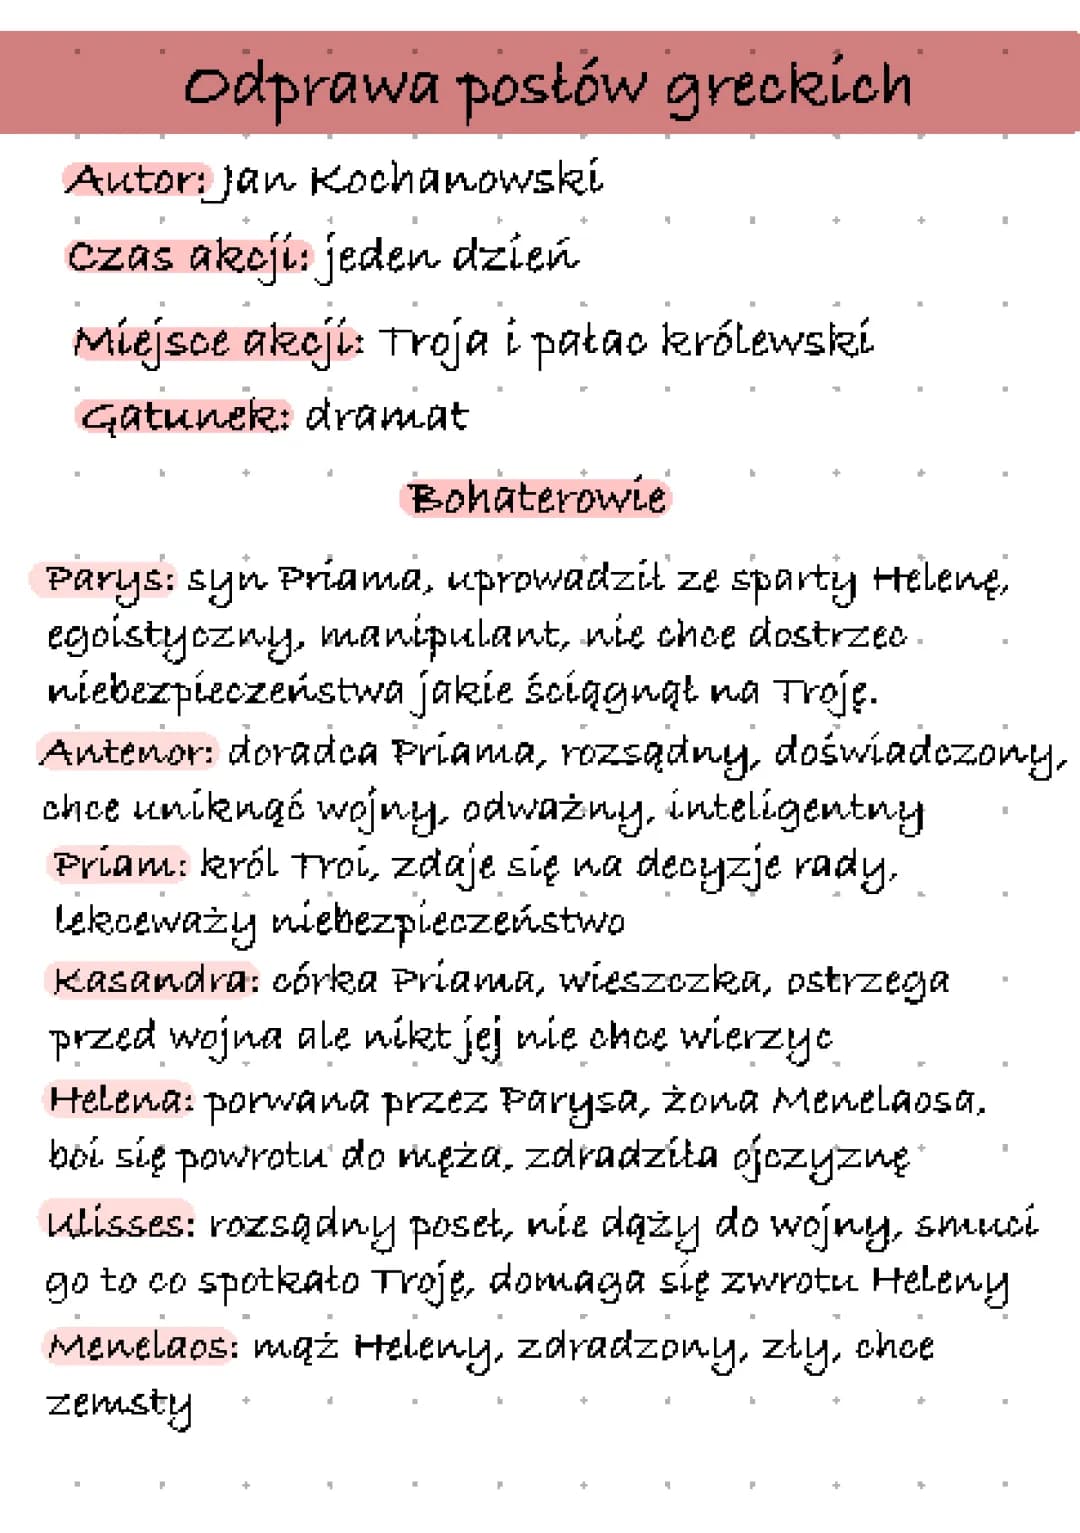 Odprawa posłów greckich
Autor: Jan Kochanowski
Czas akcji: jeden dzień
Miejsce akcji: Troja i pałac królewski
Gatunek: dramat
Bohaterowie
Parys: syn Priama, uprowadził ze sparty Helenę,
egoistyczny, manipulant, nie chce dostrzec
niebezpieczeństwa jakie ściągnął na Troję.
Antenor: doradca Priama, rozsądny, doświadczony,
chce uniknąć wojny, odważny, inteligentny
Priam: król Troi, zdaje się na decyzje rady,
lekceważy niebezpieczeństwo
Kasandra: córka Priama, wieszczka, ostrzega
przed wojna ale nikt jej nie chce wierzyc
Helena: porwana przez Parysa, żona Menelaosa.
boi się powrotu do męża, zdradziła ojczyznę
Ulisses: rozsądny poseł, nie dąży do wojny, smuci
go to co spotkało Troję, domaga się zwrotu Heleny
Menelaos: mąż Heleny, zdradzony, zły, chce
zemsty